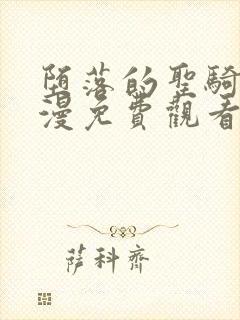 堕落的聖騎
漫免費觀看
薩科齊